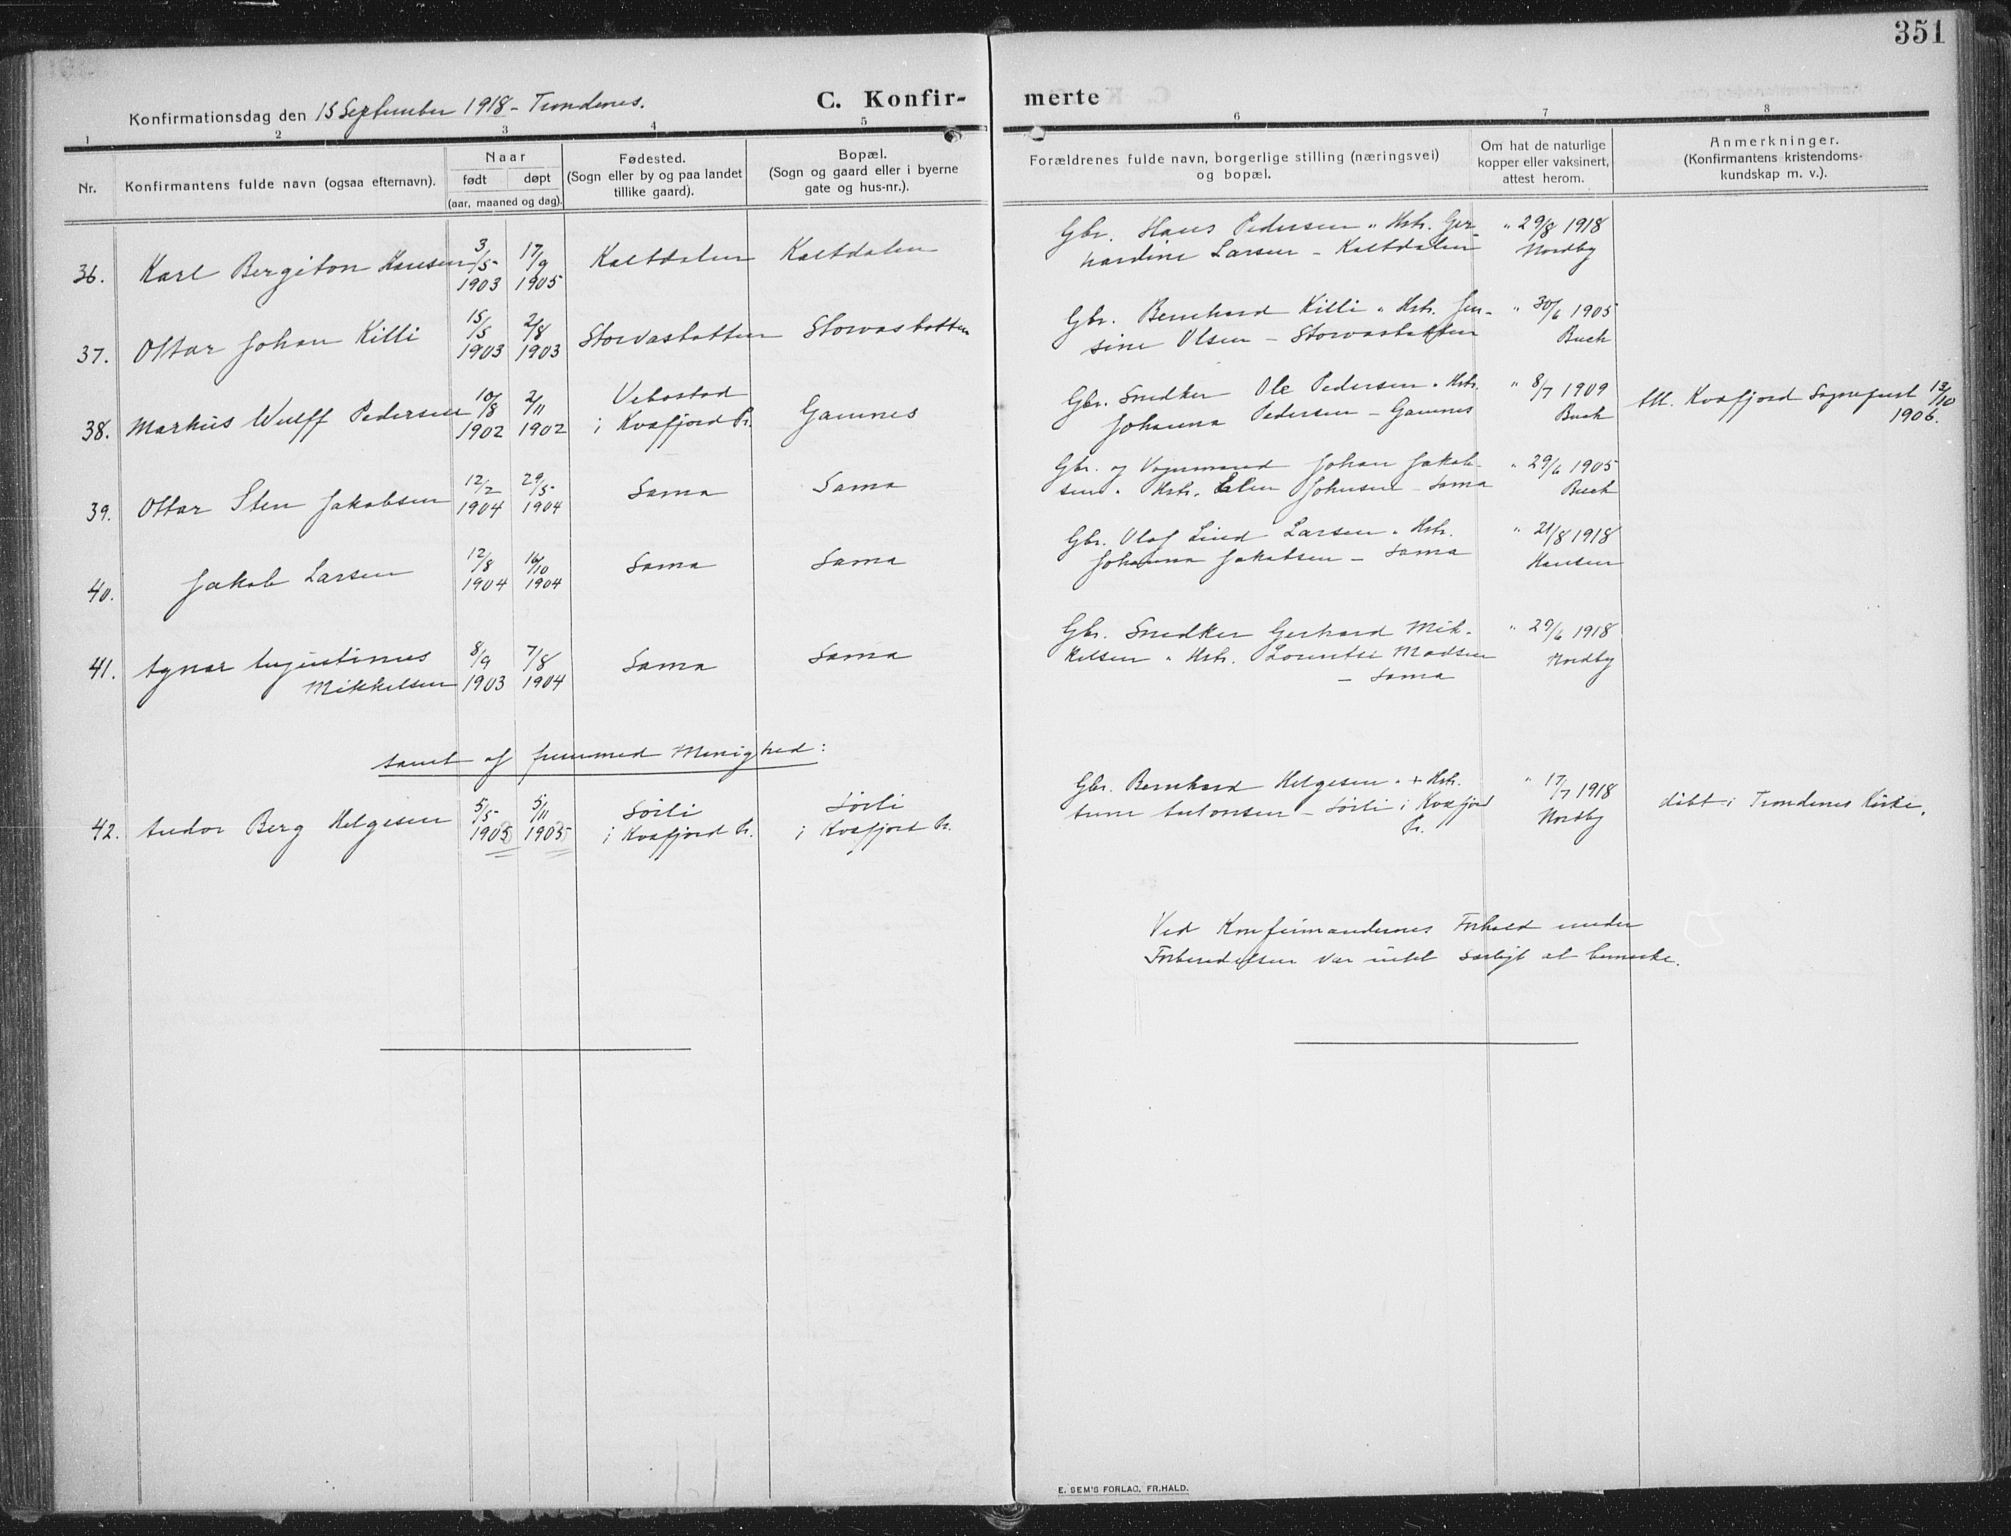 351
Konfirmationsdag den 15 September 1918 - Trondenes.
C. Konfir-
merte
1 2 3 4 5 6 7 8
Nr.
Konfirmantens fulde navn (ogsaa efternavn).
Naar
født døpt
(aar, maaned og dag).
Fødested.
(Sogn eller by og paa landet
tillike gaard).
Bopæl.
(Sogn og gaard eller i byerne
gate og hus-nr.).
Forældrenes fulde navn, borgerlige stilling (næringsvei)
og bopæl.
Om hat de naturlige
kopper eller vaksinert,
attest herom.
Anmerkninger.
(Konfirmantens kristendoms-
kundskap m. v.).
36. Karl Bergiton Hansen 3/5 1903 17/9 1905 Kaltdalen Kaltdalen
Gbr. Hans Pedersen " Hstr. Ger- " 29/8 1918
hardine Larsen - Kaltdalen Nordby
37. Ottar Johan Killi 15/5 1903 2/8 1903 Storvasbotten Storvasbotten
Gbr. Bernhard Killi " Hstr. Jen- " 30/6 1905
sine Olsen - Storvasbotten Buch
38. Markus Wulff Pedersen 10/8 1902 2/11 1902 Vebostad
i Kvæfjord Pr. Gamnes
Gbr. Snedker Ole Pedersen " Hstr. " 8/7 1909
Johanna Pedersen - Gamnes Buch
Att. Kvæfjord Sogneprest 13/10
1906.
39. Ottar Sten Jakobsen 12/2 1904 29/5 1904 Sama Sama
Gbr. og Vognmand Johan Jakob- " 29/6 1905
sen " Hstr. Elen Johnsen - Sama Buch
40. Jakob Larsen 12/8 1904 16/10 1904 Sama Sama
Gbr. Olaf Lind Larsen " Hstr. " 21/8 1918
Johanna Jakobsen - Sama Hansen
41. Agnar Augustinus
Mikkelsen 8/9 1903 7/8 1904 Sama Sama
Gbr. Snedker Gerhard Mik- " 29/6 1918
kelsen " Hstr. Lorentse Madsen Nordby
- Sama
samt af fremmed Menighed:
42. Andor Berg Helgesen 5/5 1903 5/11 1903 Sörli
i Kvæfjord Pr. Sörli
i Kvæfjord Pr.
Gbr. Bernhard Helgesen " + Hstr. " 17/7 1918
Anne Antonsen - Sörli i Kvæfjord Nordby
Pr.
döbt i Trondenes Kirke.
Ved Konfirmandernes Forhold under
Forberedelsen var intet særligt at bemerke.
E. SEM'S FORLAG, FR.HALD.